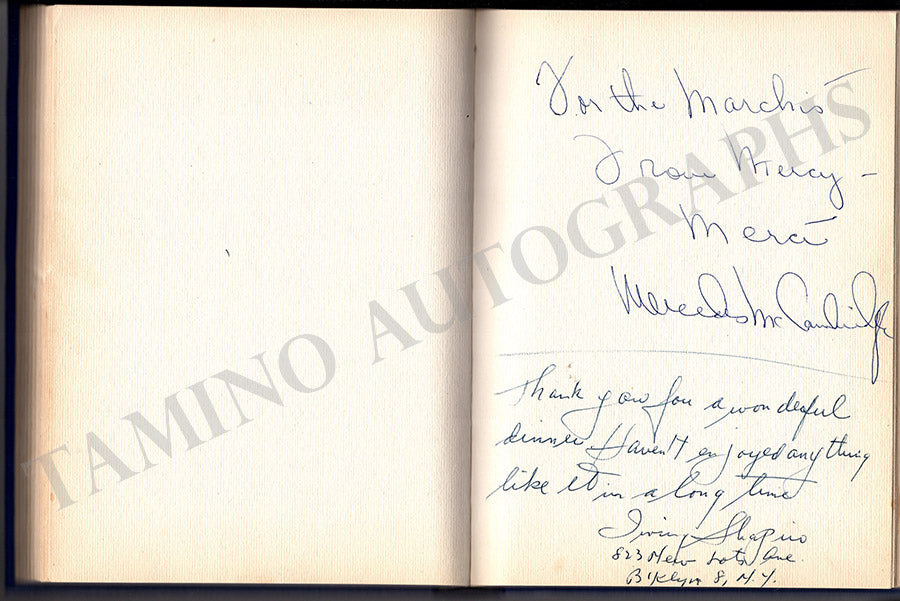 For the Marchis
From Mercy –
Merci
Mercedes McCambridge
Thank you for a wonderful
dinner. Haven't enjoyed anything
like it in a long time
Irving Shapiro
823 New Lots Ave.
B'klyn 8, N.Y.
TAMINO AUTOGRAPHS